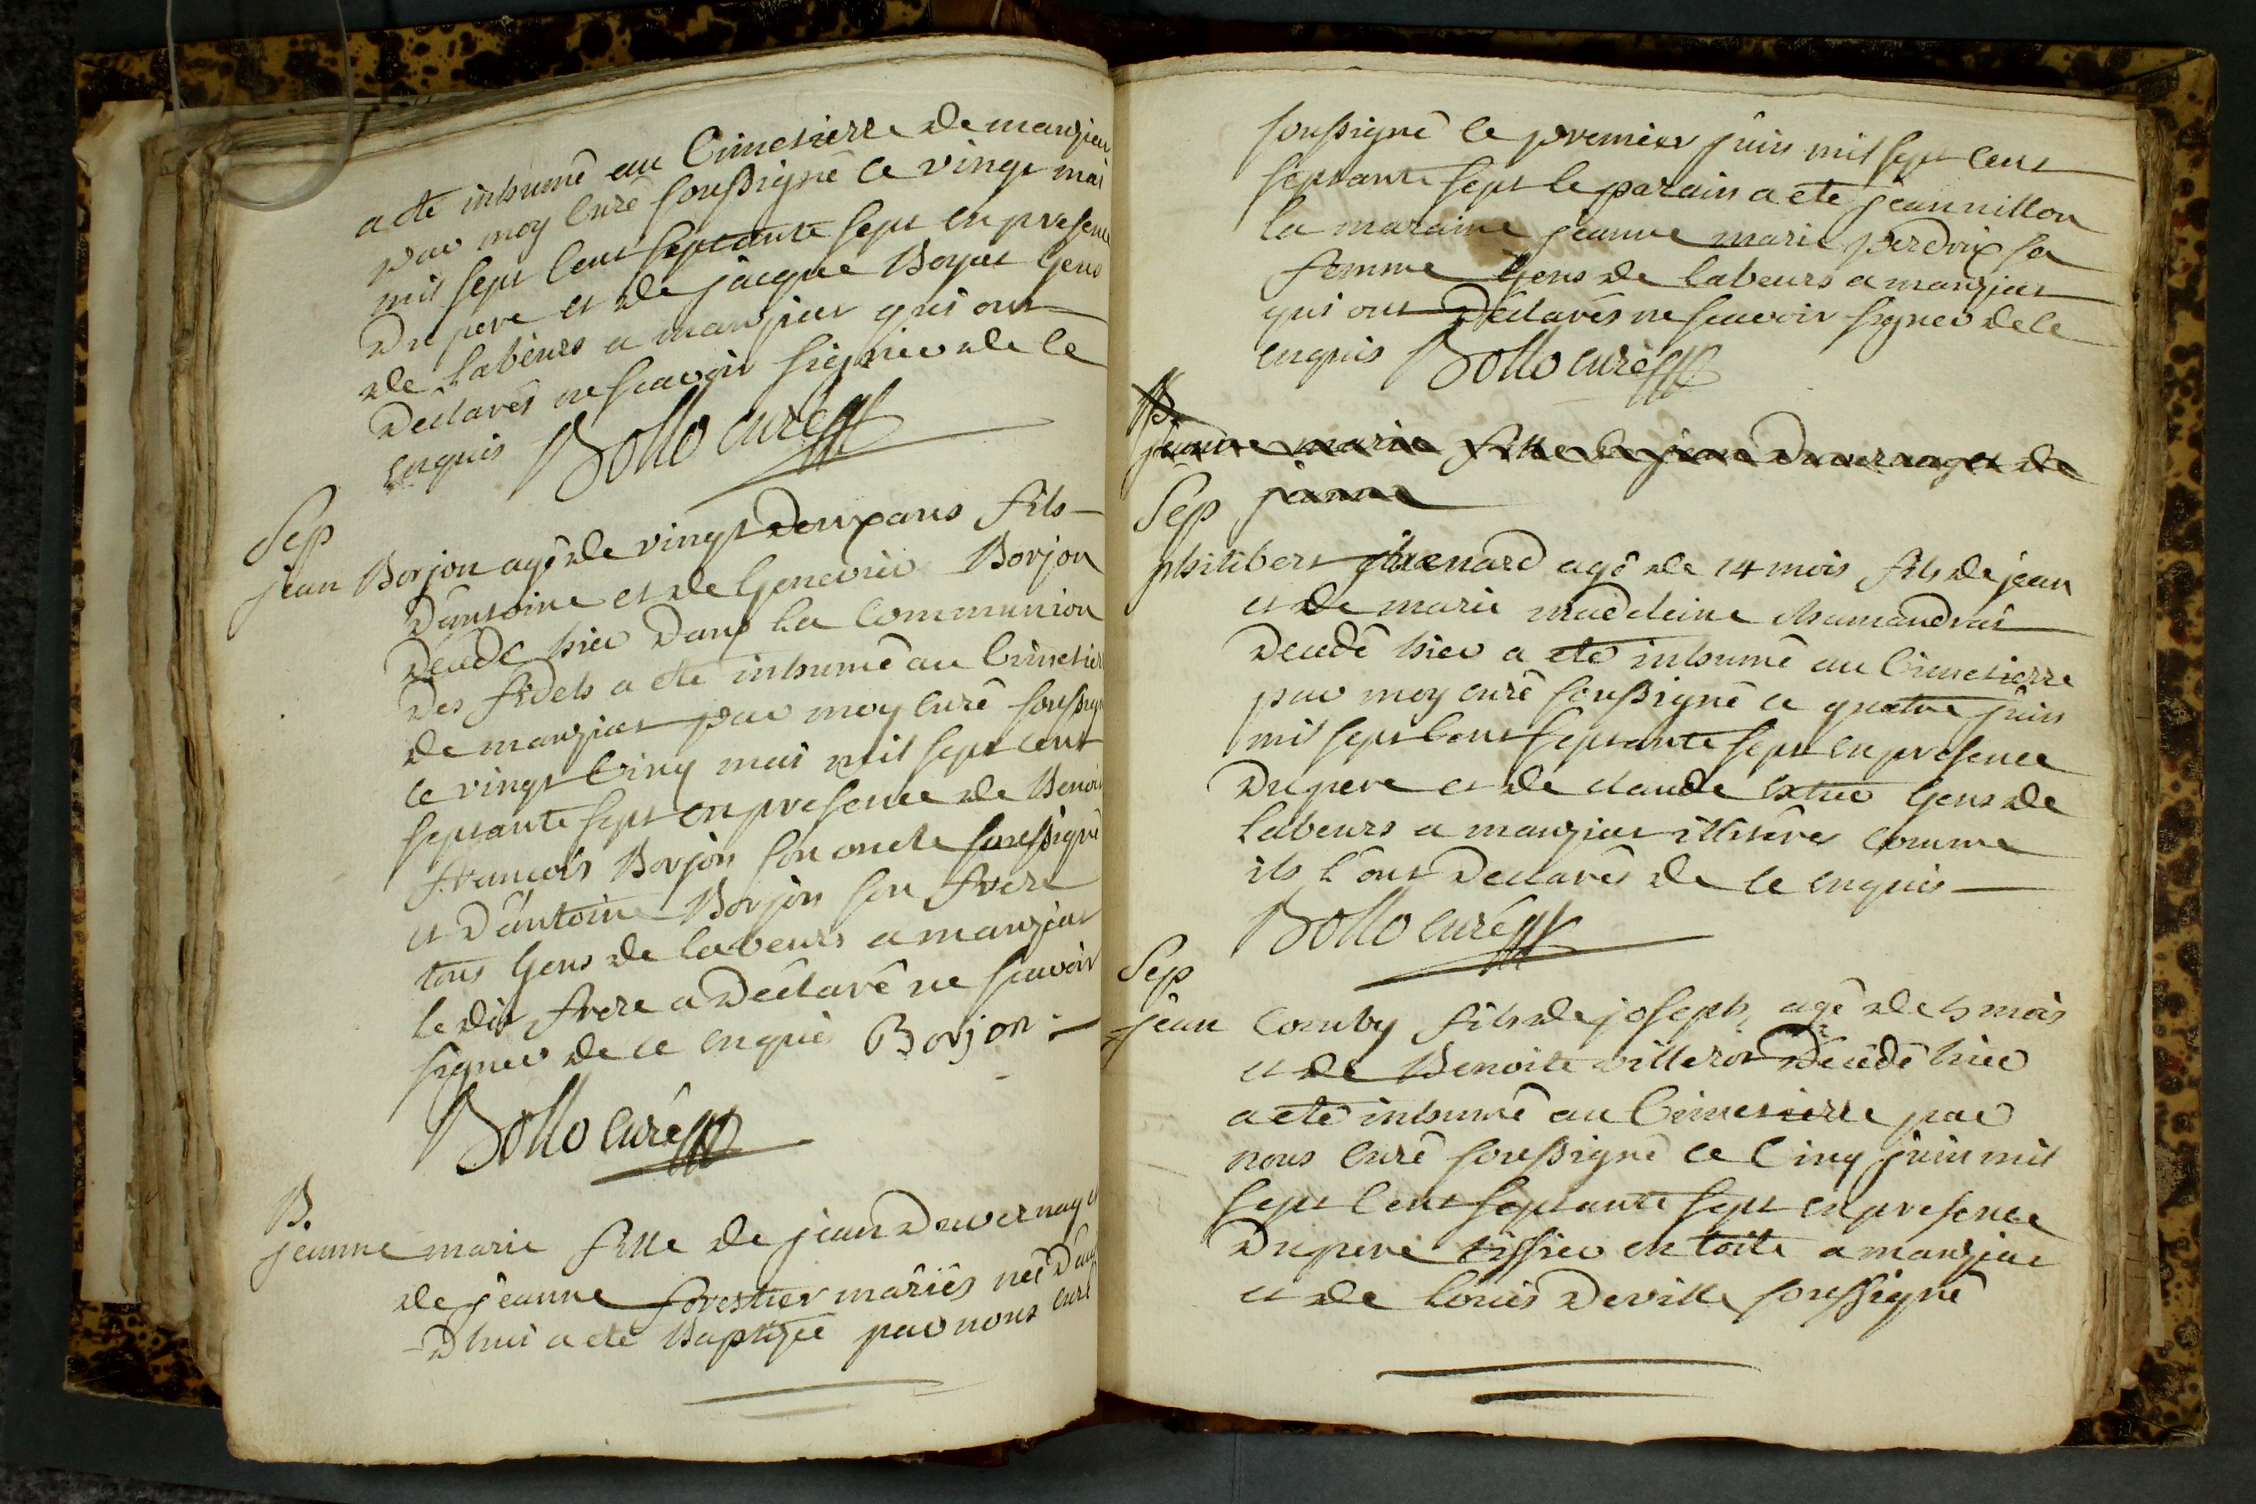 a ete inhumé au Cimetierre de manziat
par moy curé soussigné ce vingt mai
mil sept cent septante sept en presence
du pere et de jacque Boyat gens
de labeurs a manziat qui ont
declarés ne scavoir signer de ce
enquis Bollo curé
Sep
jean Borjon agé de vingt deux ans fils
d'antoine et de Genevier Borjon
decedé hier dans la Communion
des fidels a ete inhumé au Cimetier
de manziat par moy curé soussigné
ce vingt cinq mai mil sept cent
septante sept en presence de Benoit
francois Borjon son oncle soussigné
et d'antoine Borjon son frere
tous gens de labeurs a manziat
le dit frere a déclaré ne scavoir
signer de ce enquis Borjon
Bollo curé
B.
jeanne marie fille de jean Duvernay et
de jeanne forestier mariés neé d'auj
-d'hui a ete Baptizeé par nous curé
soussigné le premier juin mil sept cent
septante sept le parain a eté jean nillon
la maraine jeanne marie perdrix sa
femme gens de labeurs a manziat
qui ont déclarés ne scavoir signer de ce
enquis Bollo curé
B.
jeanne marie fille de jean Duvernay et de
jeanne
Sep
philibert renard agé de 14 mois fils de jean
et de marie madeleine chamandrai
decedé hier a eté inhumé au Cimetierre
par moy curé soussigné ce quatre juin
mil sept cent septante sept en presence
du pere et de claude gens de
labeurs a manziat illiterés comme
ils l'ont declarés de ce enquis
Bollo curé
Sep
jean Comby fils de joseph agé de 5 mois
et de Benoite villerot décédé hier
a eté inhumé au Cimetierre par
nous curé soussigné ce cinq juin mil
sept cent septante sept en presence
du pere tissier en toile a manziat
et de louis Deville soussigné